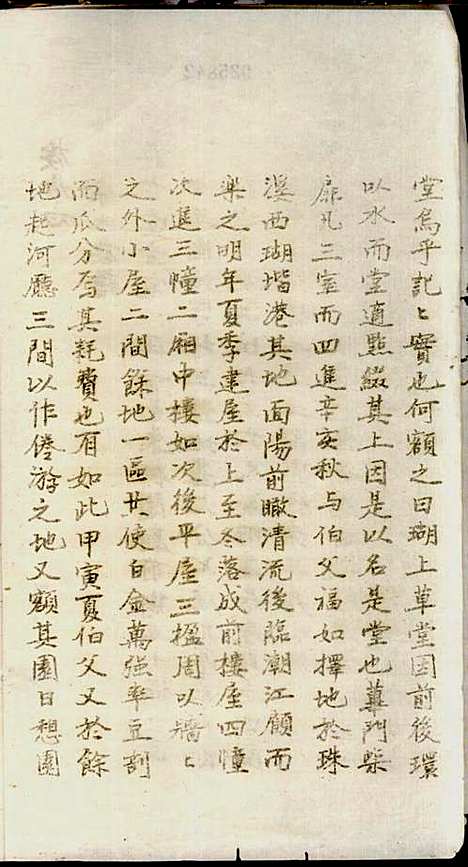 堂烏乎記〻實也何額之曰瑚上草堂因前後環
以水而堂適點綴其上因是以名是堂也蓽門柴
扉凡三室而四進辛亥秋与伯父福如擇地於珠
溪西瑚堦港其地面陽前瞰清流後臨潮江顧而
樂之明年夏季建屋於上至冬落成前樓屋四幢
次進三幢一廂中樓如次後平屋三楹周以牆〻
之外小屋二間餘地一區共使白金萬強率豆剖
而瓜分焉其耗費也有如此甲寅夏伯父又於餘
地耗河廳三間以作倦游之地又額其園曰憩園